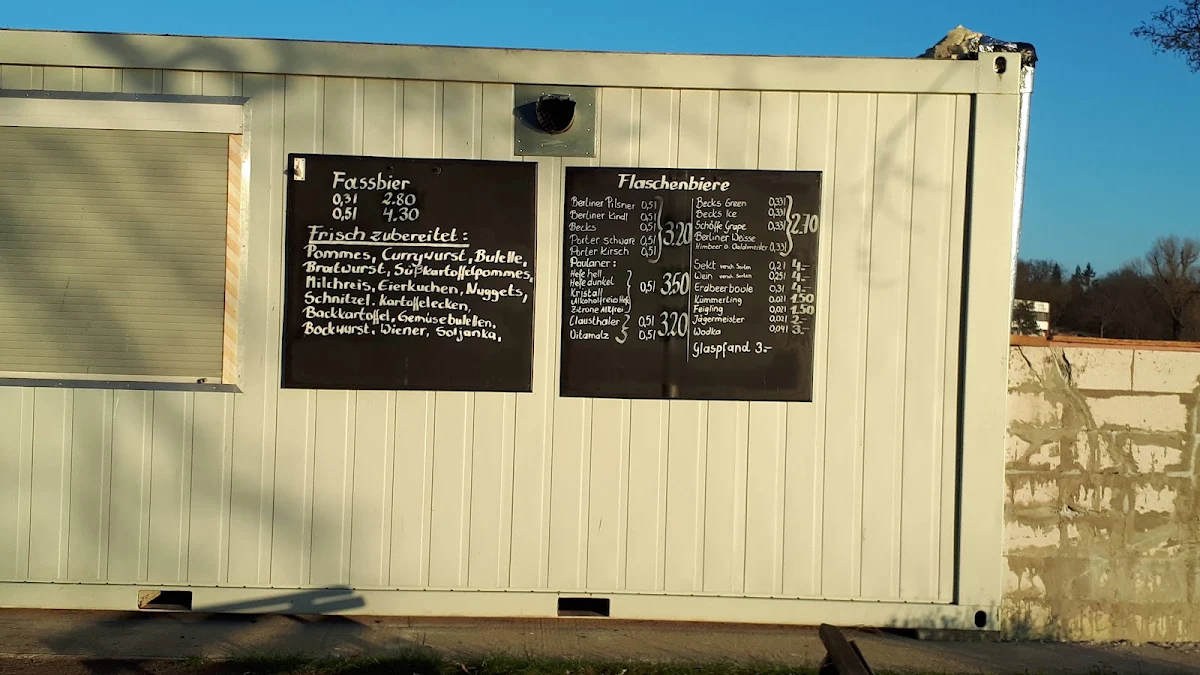 Fassbier
0,3l 2.80
0,5l 4.30
Frisch zubereitet:
Pommes, Currywurst, Bulette,
Bratwurst, Süßkartoffelpommes,
Milchreis, Eierkuchen, Nuggets,
Schnitzel. Kartoffelecken,
Backkartoffel, Gemüsebuletten,
Bockwurst, Wiener, Soljanka,
Flaschenbiere
Berliner Pilsner 0,5l
Berliner Kindl 0,5l
Becks 0,5l
Porter schwarz 0,5l
Porter Kirsch 0,5l
3.20
Paulaner:
Hefe hell
Hefe dunkel
Kristall
Alkoholfreies Hefe
Zitrone Alkfrei
0,5l 3.50
Clausthaler 0,5l
Vitamalz 0,5l
3.20
Becks Green 0,33l
Becks Ice 0,33l
Schöffe Grape 0,33l
Berliner Weisse
Himbeer o. Waldmeister 0,33l
2.70
Sekt versch. Sorten 0,2l 4.-
Wein versch. Sorten 0,25l 4.-
Erdbeerbowle 0,3l 4.-
Kümmerling 0,02l 1.50
Feigling 0,02l 1.50
Jägermeister 0,02l 2.-
Wodka 0,04l 3.-
Glaspfand 3.-